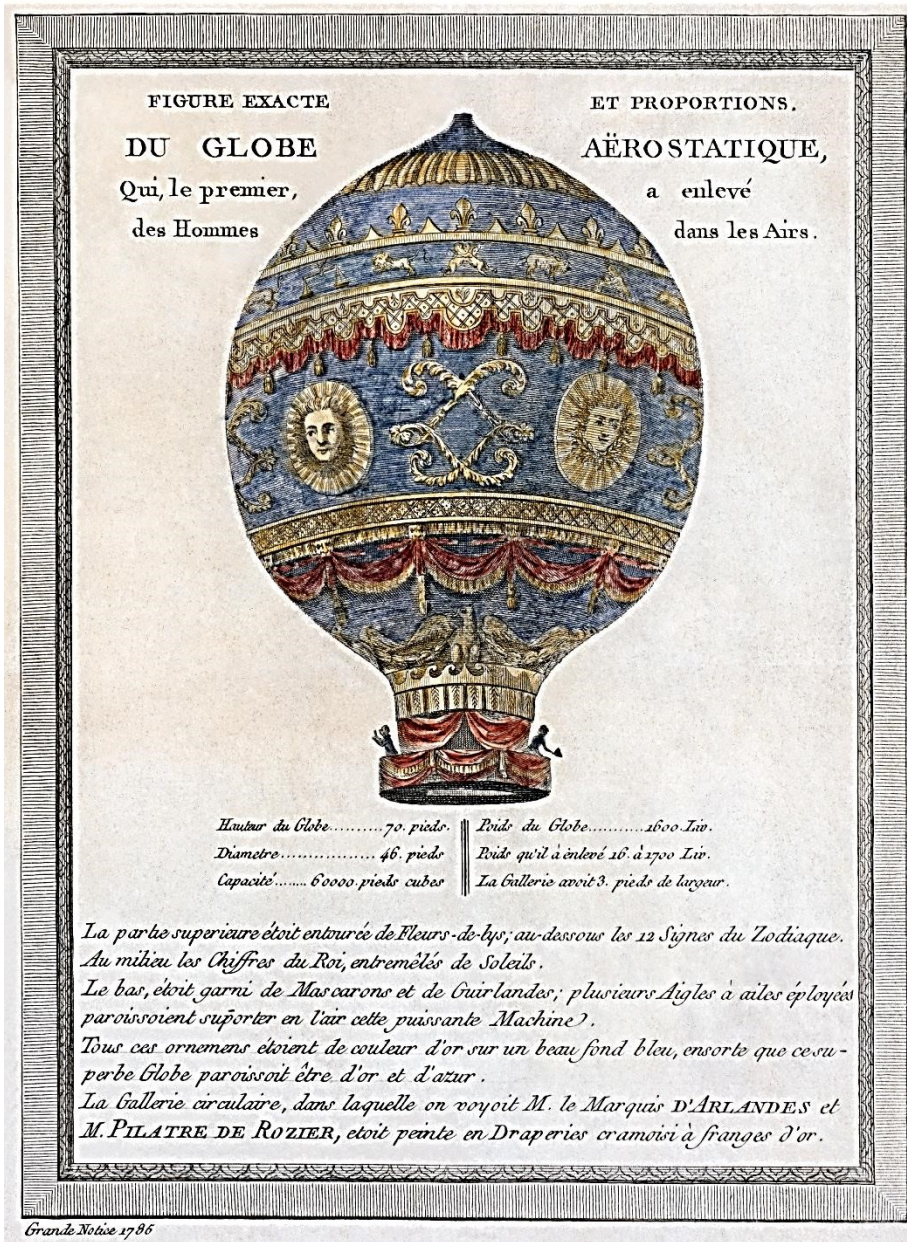 FIGURE EXACTE ET PROPORTIONS.
DU GLOBE AËROSTATIQUE,
Qui, le premier, a enlevé
des Hommes dans les Airs.
Hauteur du Globe..........70. pieds.
Diametre................. 46. pieds
Capacité....... 60000. pieds cubes
Poids du Globe...........1600. Liv.
Poids qu'il à enlevé 16. à 1700 Liv.
La Gallerie avoit 3. pieds de largeur.
La partie superieure étoit entourée de Fleurs-de-lys; au-dessous les 12 Signes du Zodiaque.
Au milieu les Chiffres du Roi, entremêlés de Soleils.
Le bas, étoit garni de Mascarons et de Guirlandes; plusieurs Aigles à ailes éployées
paroissoient supōrter en l'air cette puissante Machine.
Tous ces ornemens étoient de couleur d'or sur un beau fond bleu, ensorte que ce su-
perbe Globe paroissoit être d'or et d'azur.
La Gallerie circulaire, dans laquelle on voyoit M. le Marquis D'ARLANDES et
M. PILATRE DE ROZIER, etoit peinte en Draperies cramoisi à franges d'or.
Grande Notice 1786